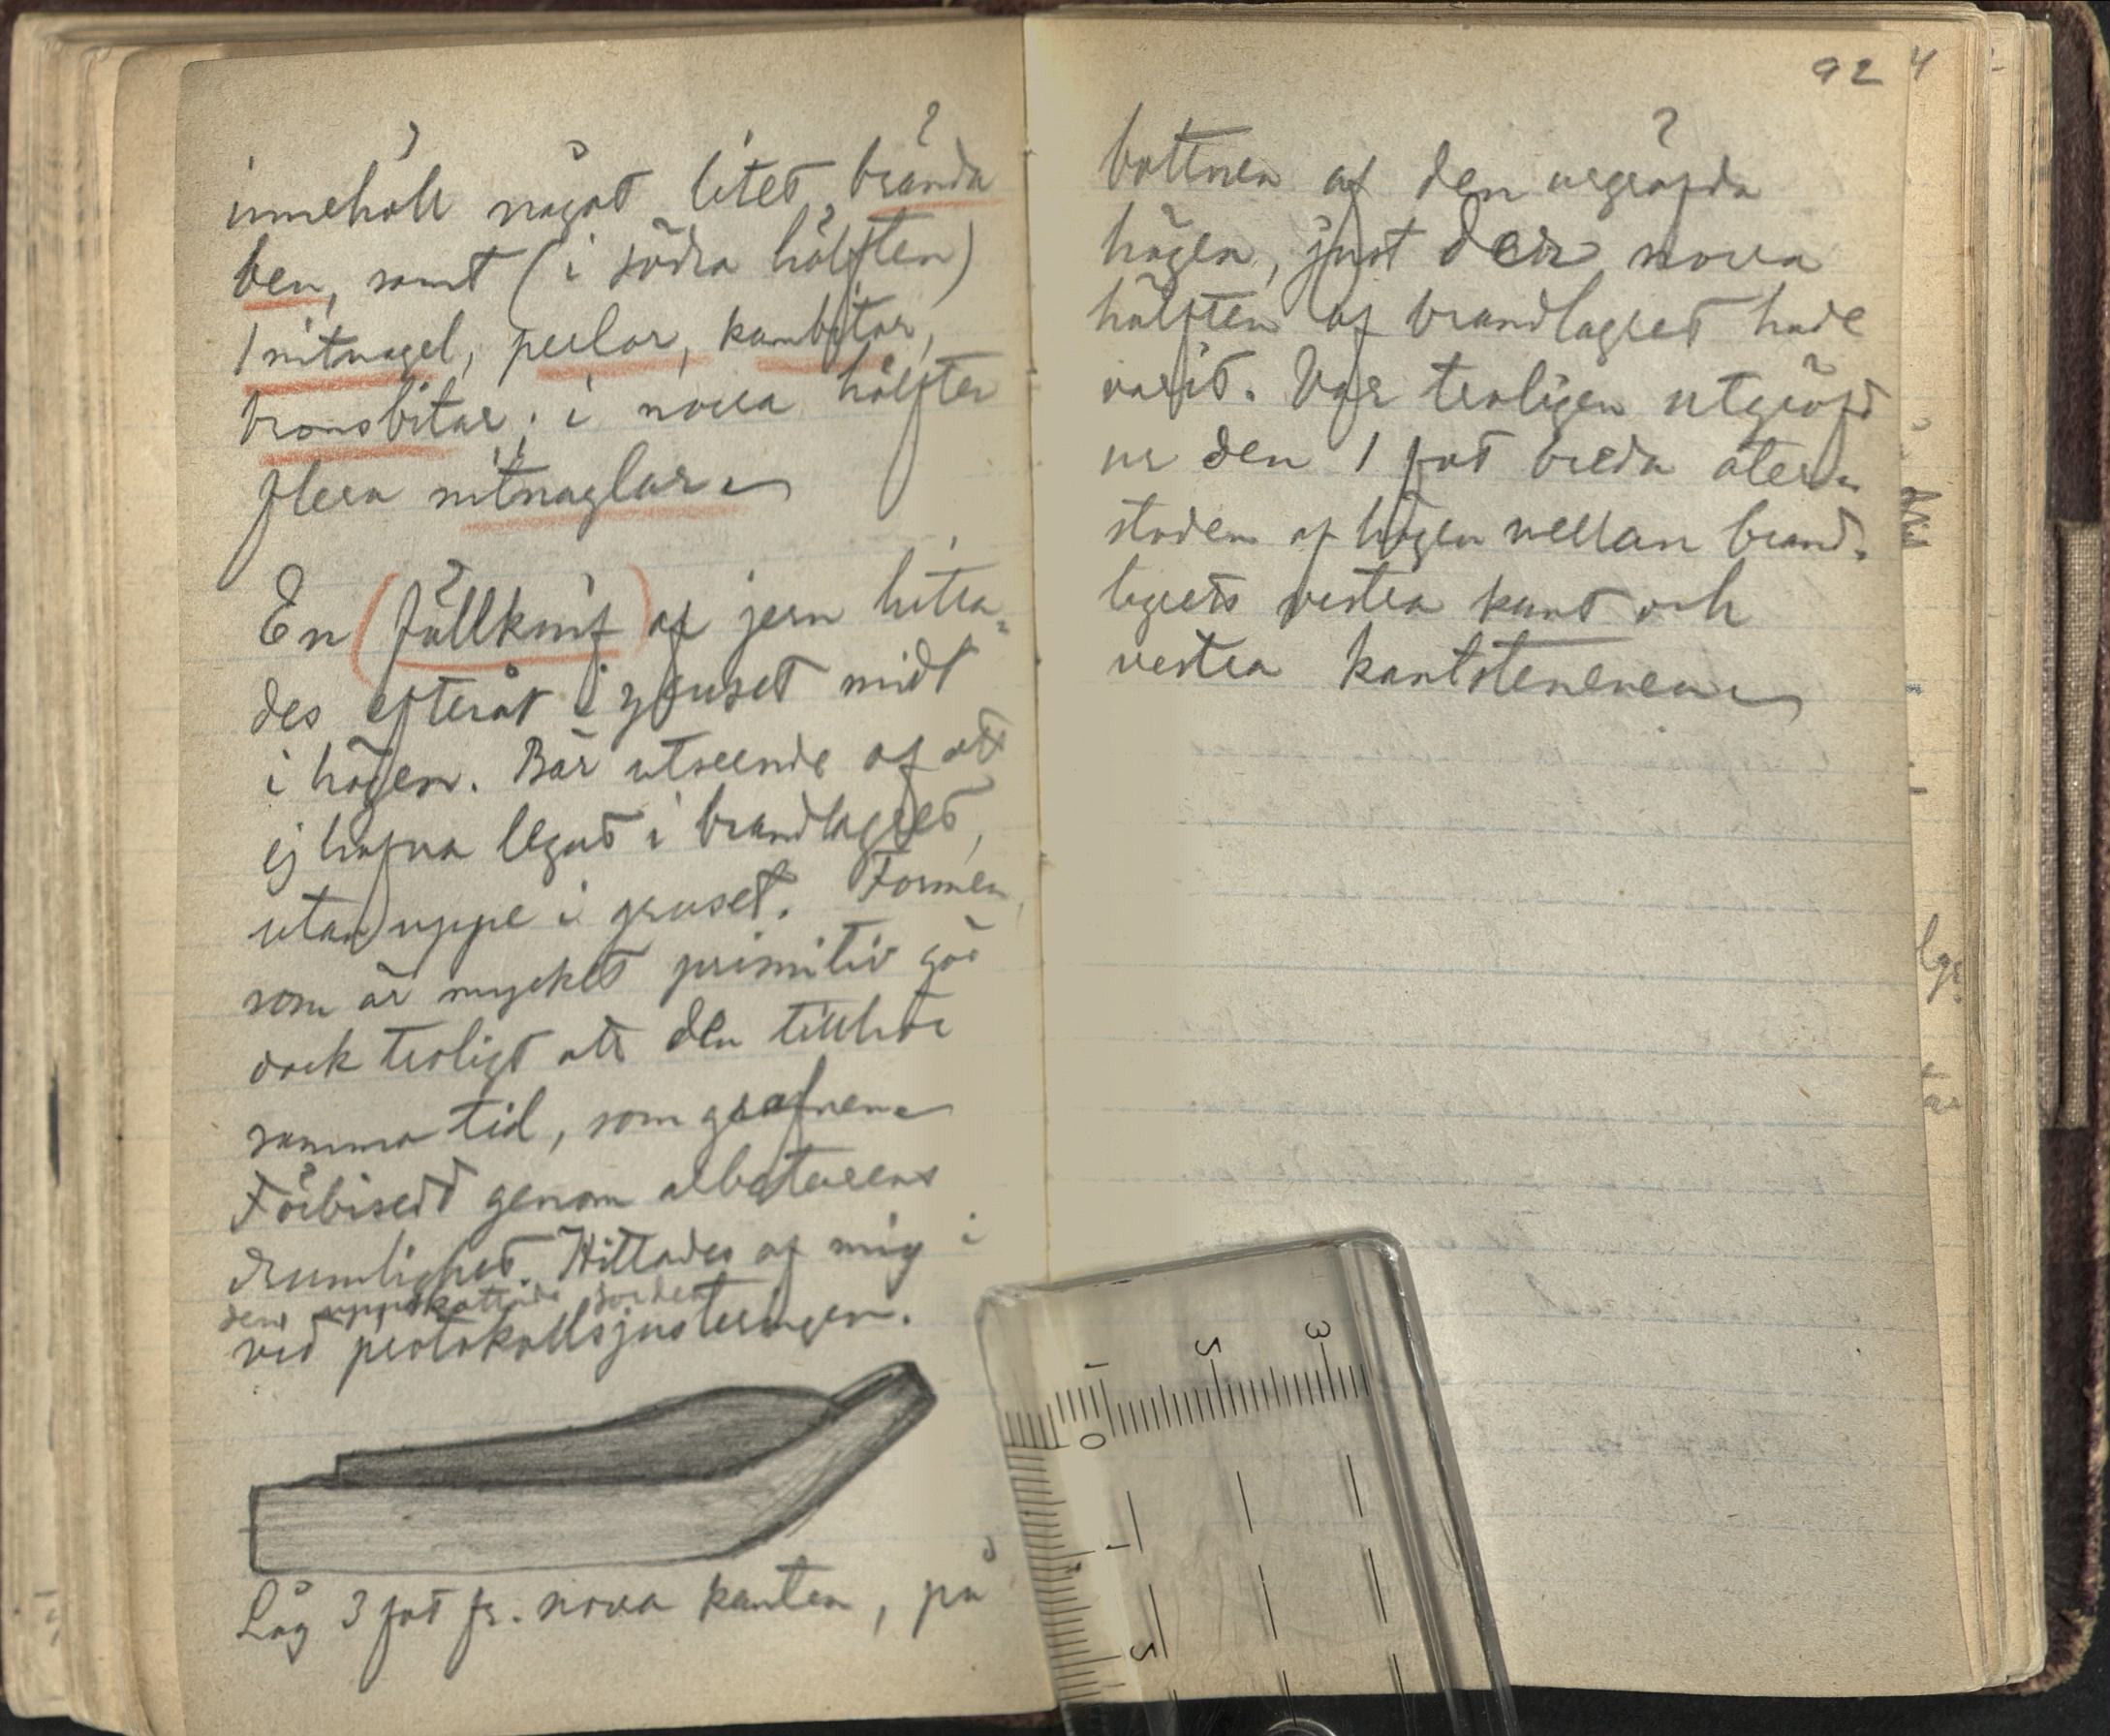 innehöll något litet brända
ben, samt (i södra hälften)
1 nitnagel, perlor, kambitar,
bronsbitar; i norra hälften
flera nitnaglar.
En (fällknif) af jern hitta-
des efteråt i gruset midt
i högen. Bär utseende af att
ej hafva legat i brandlagret,
utan uppe i gruset. Formen,
som är mycket primitiv gör
dock troligt att den tillhör
samma tid, som grafven.
Förbisedd genom arbetarens
drumlighet. Hittades af mig i
den uppskottade jorden
vid protokollsjusteringen.
Låg 3 fot fr. norra kanten, på
92
bottnen af den urgräfda
högen, just der norra
hälften af brandlagret hade
varit. Var troligen utgräfd
ur den 1 fot breda åter-
stoden af högen mellan brand-
lagrets vestra kant och
vestra kantstenenen
0
1
5
3
1
5